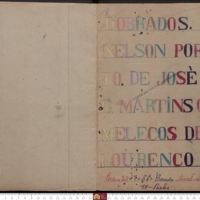 DOBRADOS.
NELSON POR
TO. DE JOSÈ
C MARTINS C
MELECOS DE
LOURENÇO